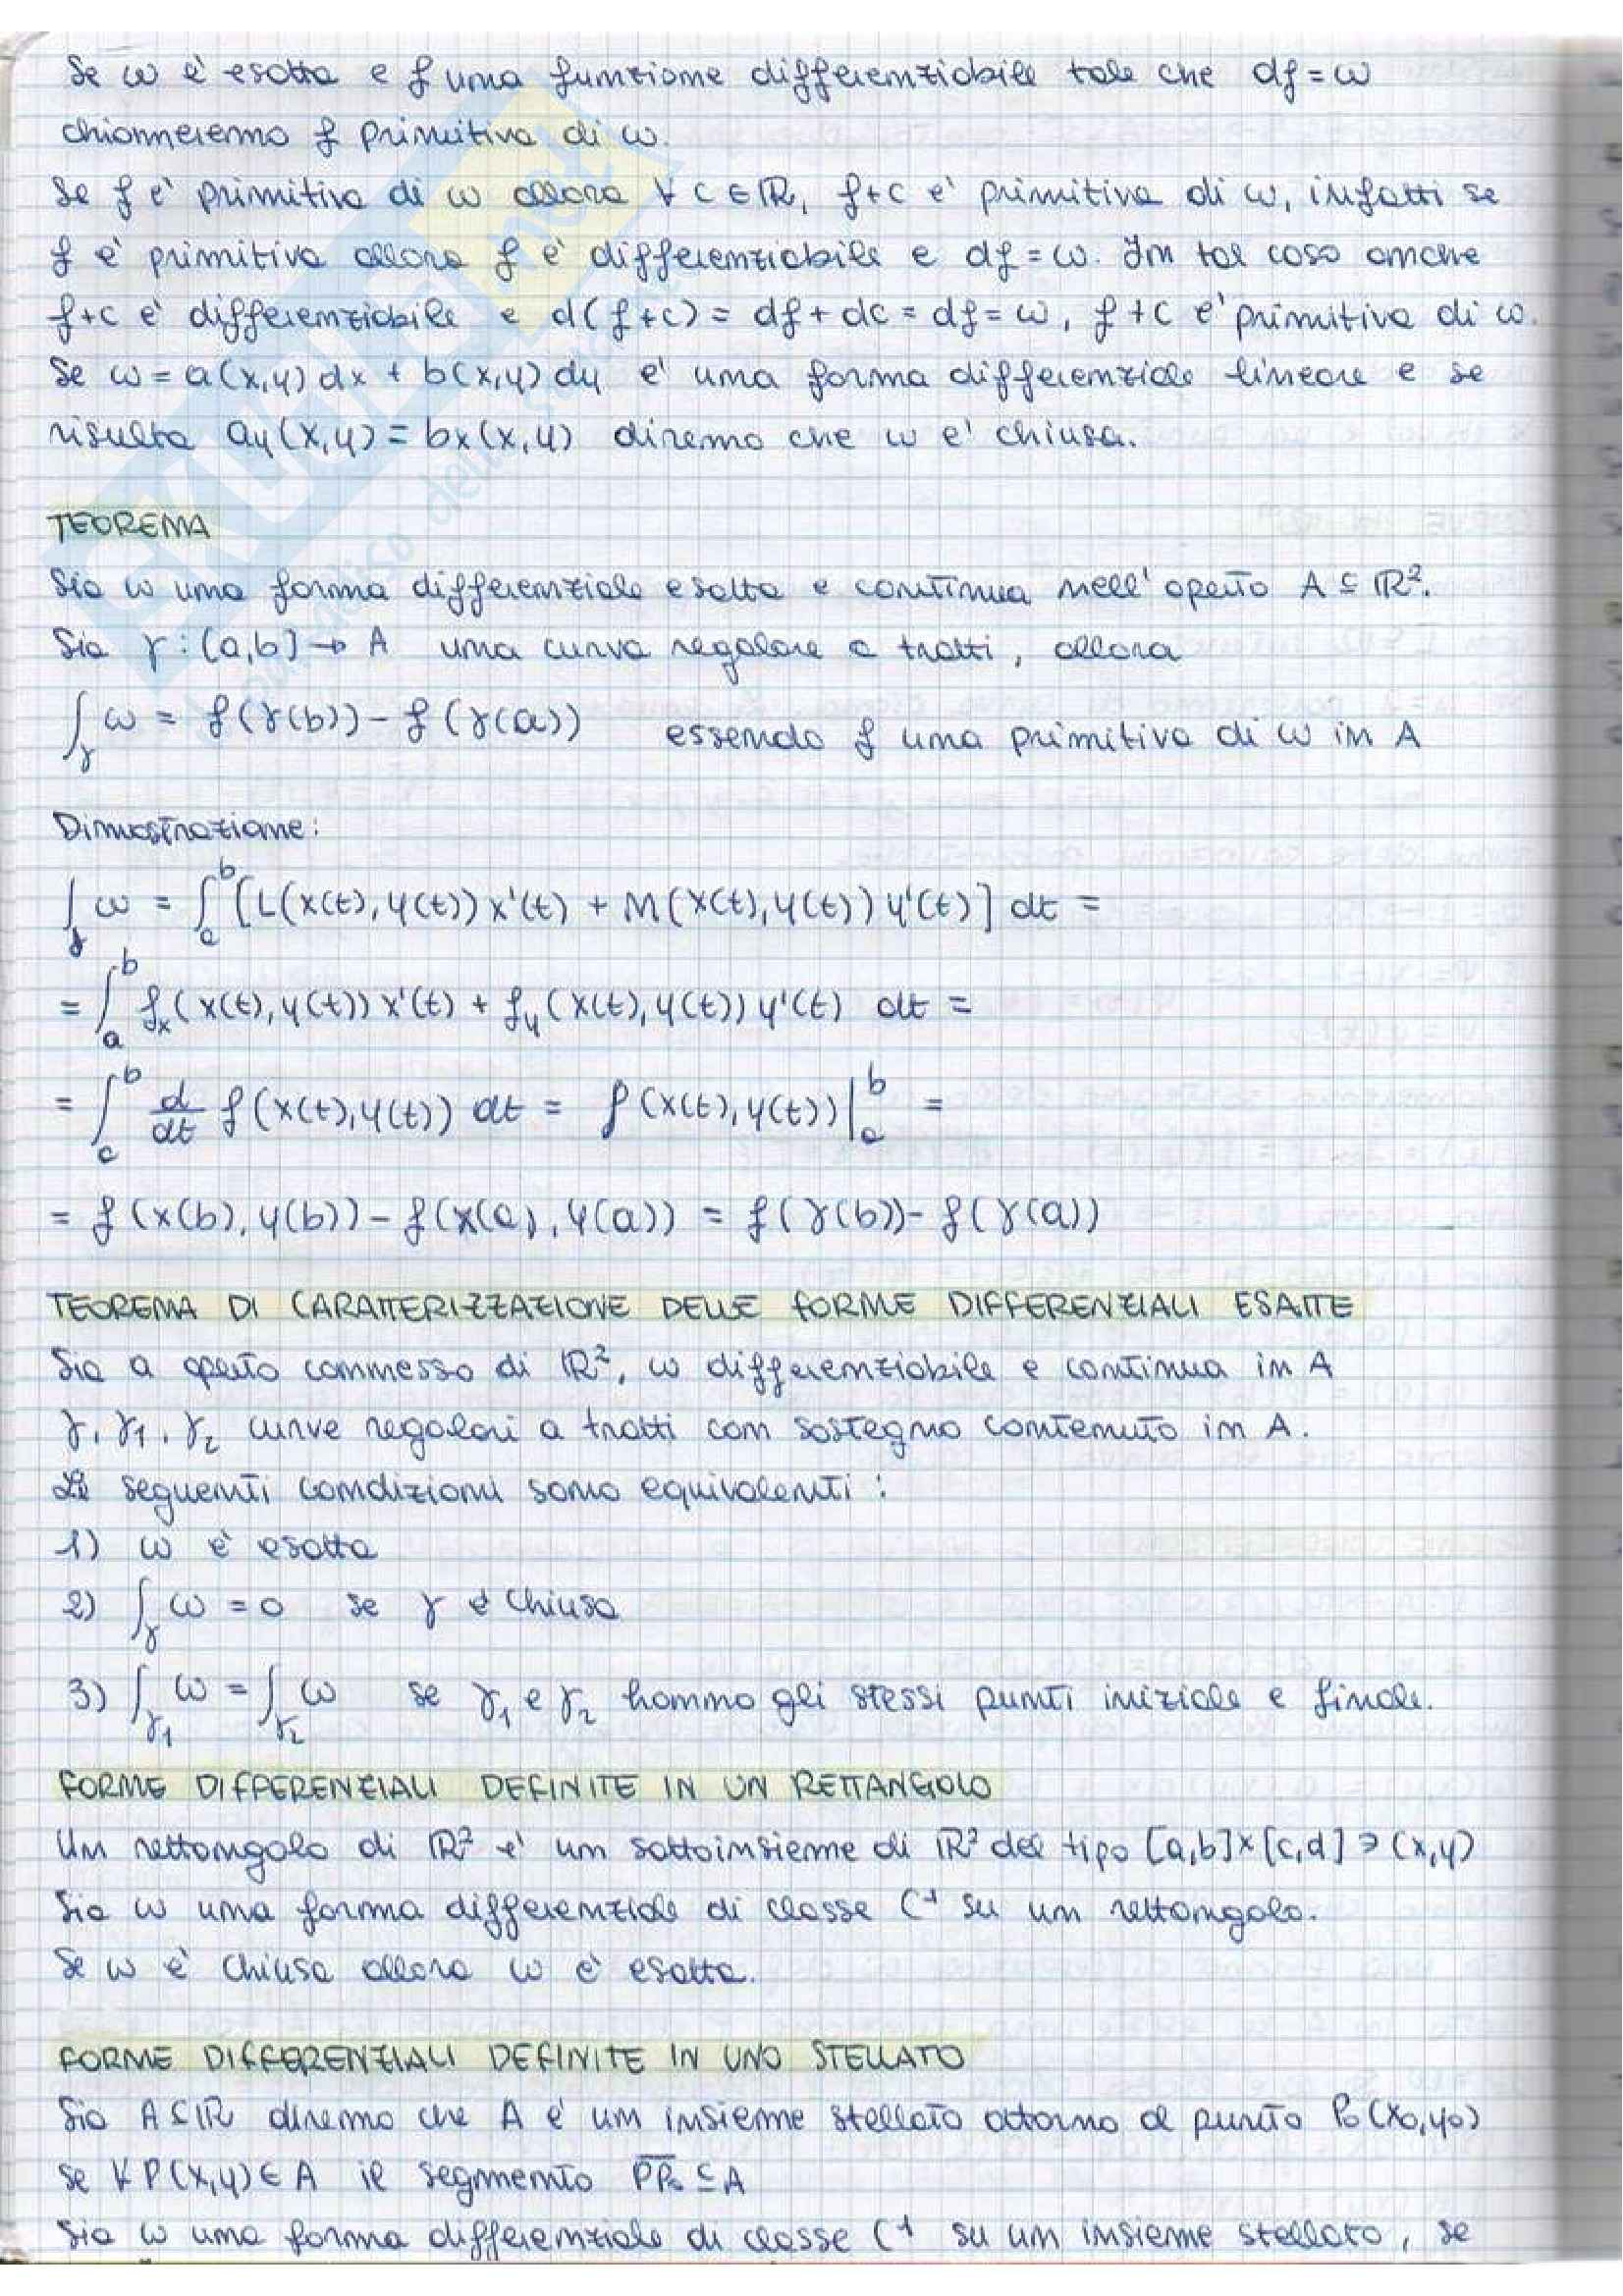 Se ω è esatta e f una funzione differenziabile tale che df = ω
chiameremo f primitiva di ω.
Se f e' primitiva di ω allora ∀ c ∈ ℝ, f+c e' primitiva di ω, infatti se
f e' primitiva allora f e' differenziabile e df = ω. In tal caso anche
f+c e' differenziabile e d(f+c) = df + dc = df = ω, f+c e' primitiva di ω.
Se ω = a(x,y)dx + b(x,y)dy e' una forma differenziale lineare e se
risulta ay(x,y) = bx(x,y) diremo che ω e' chiusa.
TEOREMA
Sia ω una forma differenziale esatta e continua nell' aperto A ⊆ ℝ².
Sia γ : [a,b] → A una curva regolare a tratti, allora
∫γ ω = f(γ(b)) - f(γ(a)) essendo f una primitiva di ω in A
Dimostrazione:
∫γ ω = ∫a^b [L(x(t),y(t))x'(t) + M(x(t),y(t))y'(t)] dt =
= ∫a^b fx(x(t),y(t))x'(t) + fy(x(t),y(t))y'(t) dt =
= ∫a^b d/dt f(x(t),y(t)) dt = f(x(t),y(t))|a^b =
= f(x(b),y(b)) - f(x(a),y(a)) = f(γ(b)) - f(γ(a))
TEOREMA DI CARATTERIZZAZIONE DELLE FORME DIFFERENZIALI ESATTE
Sia a aperto connesso di ℝ², ω differenziabile e continua in A
γ, γ1, γ2 curve regolari a tratti con sostegno contenuto in A.
Le seguenti condizioni sono equivalenti:
1) ω è esatta
2) ∫γ ω = 0 se γ è chiusa
3) ∫γ1 ω = ∫γ2 ω se γ1 e γ2 hanno gli stessi punti iniziale e finale.
FORME DIFFERENZIALI DEFINITE IN UN RETTANGOLO
Un rettangolo di ℝ² e' un sottoinsieme di ℝ² del tipo [a,b]×[c,d] ∋ (x,y)
Sia ω una forma differenziale di classe C¹ su un rettangolo.
Se ω è chiusa allora ω è esatta.
FORME DIFFERENZIALI DEFINITE IN UNO STELLATO
Sia A ⊆ ℝ diremo che A e' un insieme stellato attorno al punto P0(x0,y0)
se ∀ P(x,y) ∈ A il segmento PP0 ⊆ A
Sia ω una forma differenziale di classe C¹ su un insieme stellato, se